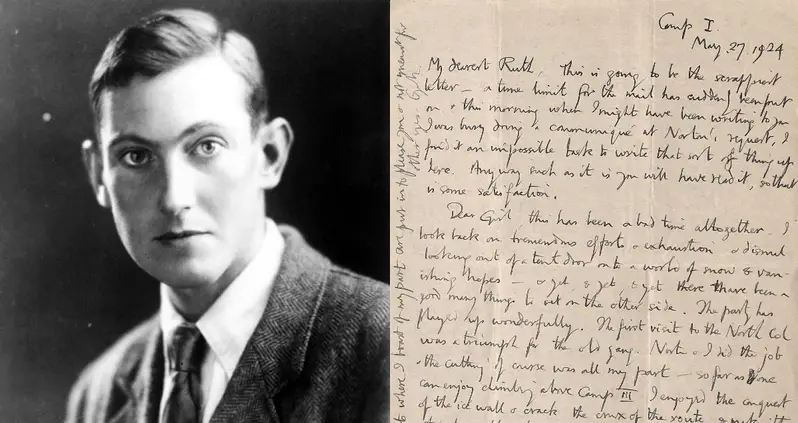 Camp I.
May. 27. 1924
My dearest Ruth, This is going to be the scrappiest
letter — a time limit for the mail has suddenly been put
on & this morning when I might have been writing to you
I was busy doing a communiqué at Norton's request, I
find it an impossible task to write that sort of thing up
here. Anyway such as it is you will have read it, so that
is some satisfaction.
Dear Girl, this has been a bad time altogether. I
look back on tremendous efforts & exhaustion & dismal
looking out of a tent door onto a world of snow & van-
ishing hopes — & yet, & yet, & yet there have been a
good many things to set on the other side. The party has
played up wonderfully. The first visit to the North Col
was a triumph for the old gang. Norton & I did the job
& the cutting of course was all my part — so far as one
can enjoy climbing above Camp III I enjoyed the conquest
of the ice wall & crack, the crux of the route, & making the
where I boast of my part are put in to please you & not meant for
other eyes